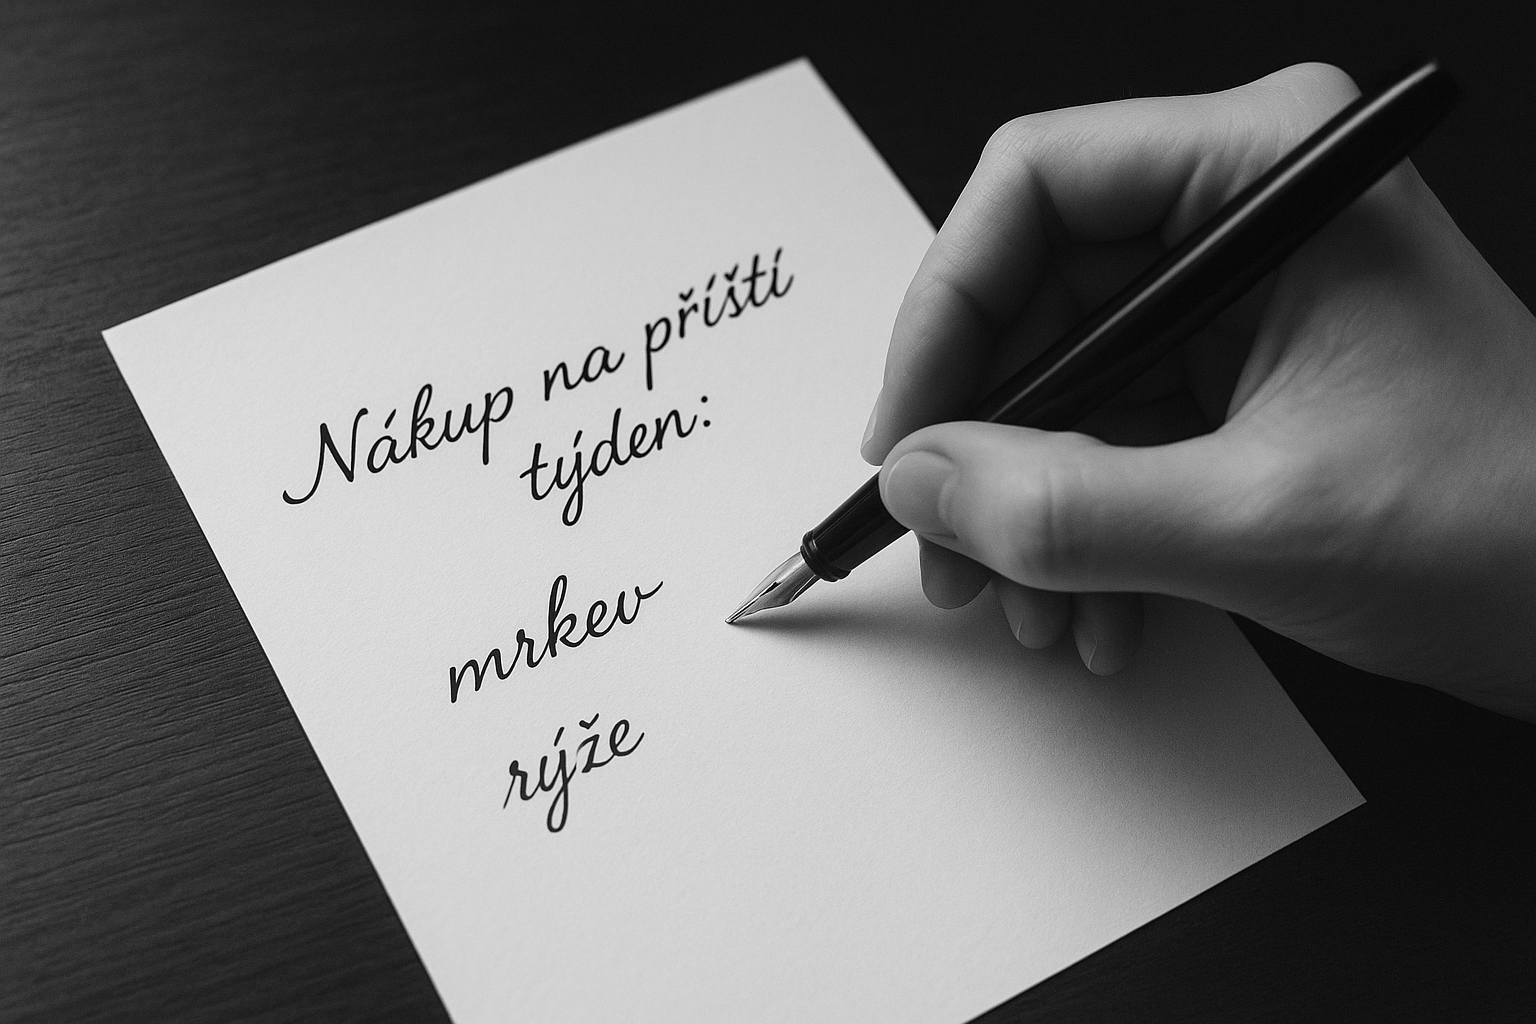 Nákup na příští
týden:
mrkev
rýže